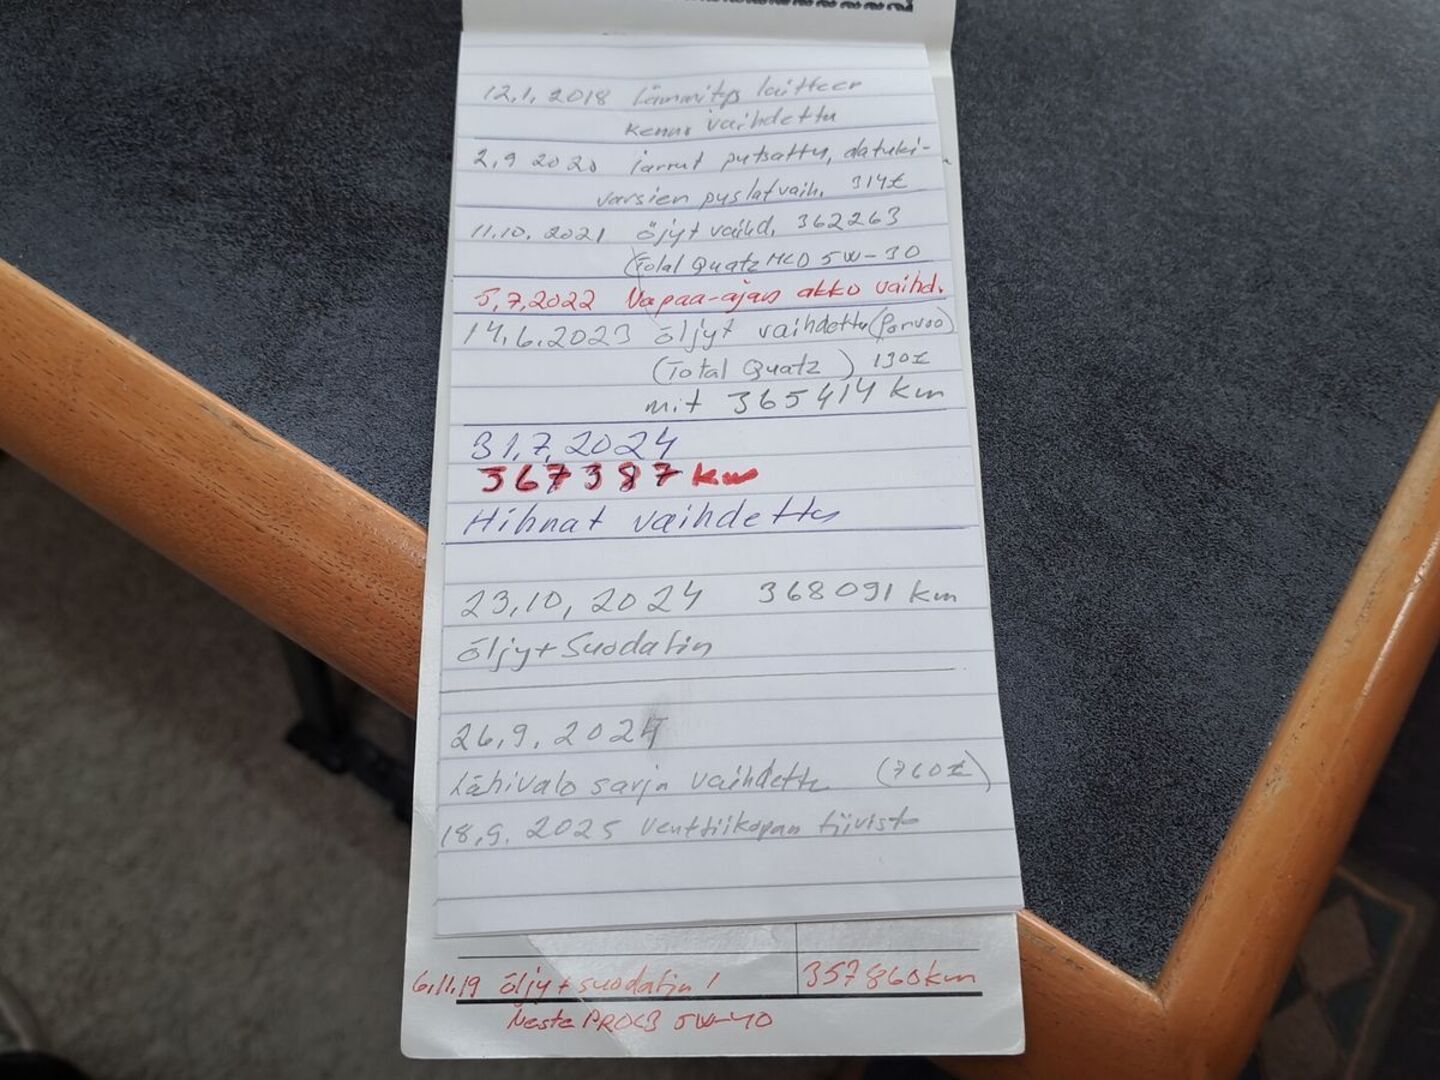 12.1. 2018 Lämmitys laitteen
kenno vaihdettu
2.9 2020 jarrut putsattu, alatuki-
varsien puslat vaih. 314€
11.10. 2021 öjyt vaihd. 362263
(Total Quatz MCD 5W-30
5.7.2022 Vapaa-ajan akko vaihd.
14.6.2023 öljyt vaihdettu (Porvoo)
(Total Quatz) 190€
mit 365414 km
31.7.2024
367387 km
Hihnat vaihdettu
23.10.2024 368091 km
öljy+Suodatin
26.9.2024
Lähivalo sarja vaihdettu (760€)
18.9.2025 Venttiikopan tiiviste
6.11.19 öljy + suodatin! 357860km
Neste PRO 5W-40